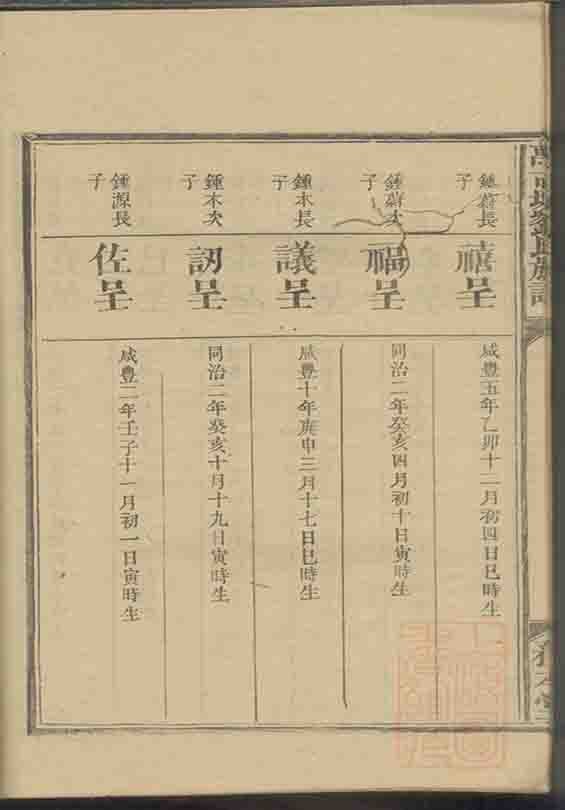 鍾蔚長子
禧呈
咸豐五年乙卯十二月初四日巳時生
鍾蔚次子
福呈
同治二年癸亥四月初十日寅時生
鍾木長子
議呈
咸豐十年庚申三月十七日巳時生
鍾木次子
訒呈
同治二年癸亥十月十九日寅時生
鍾源長子
佐呈
咸豐二年壬子十一月初一日寅時生